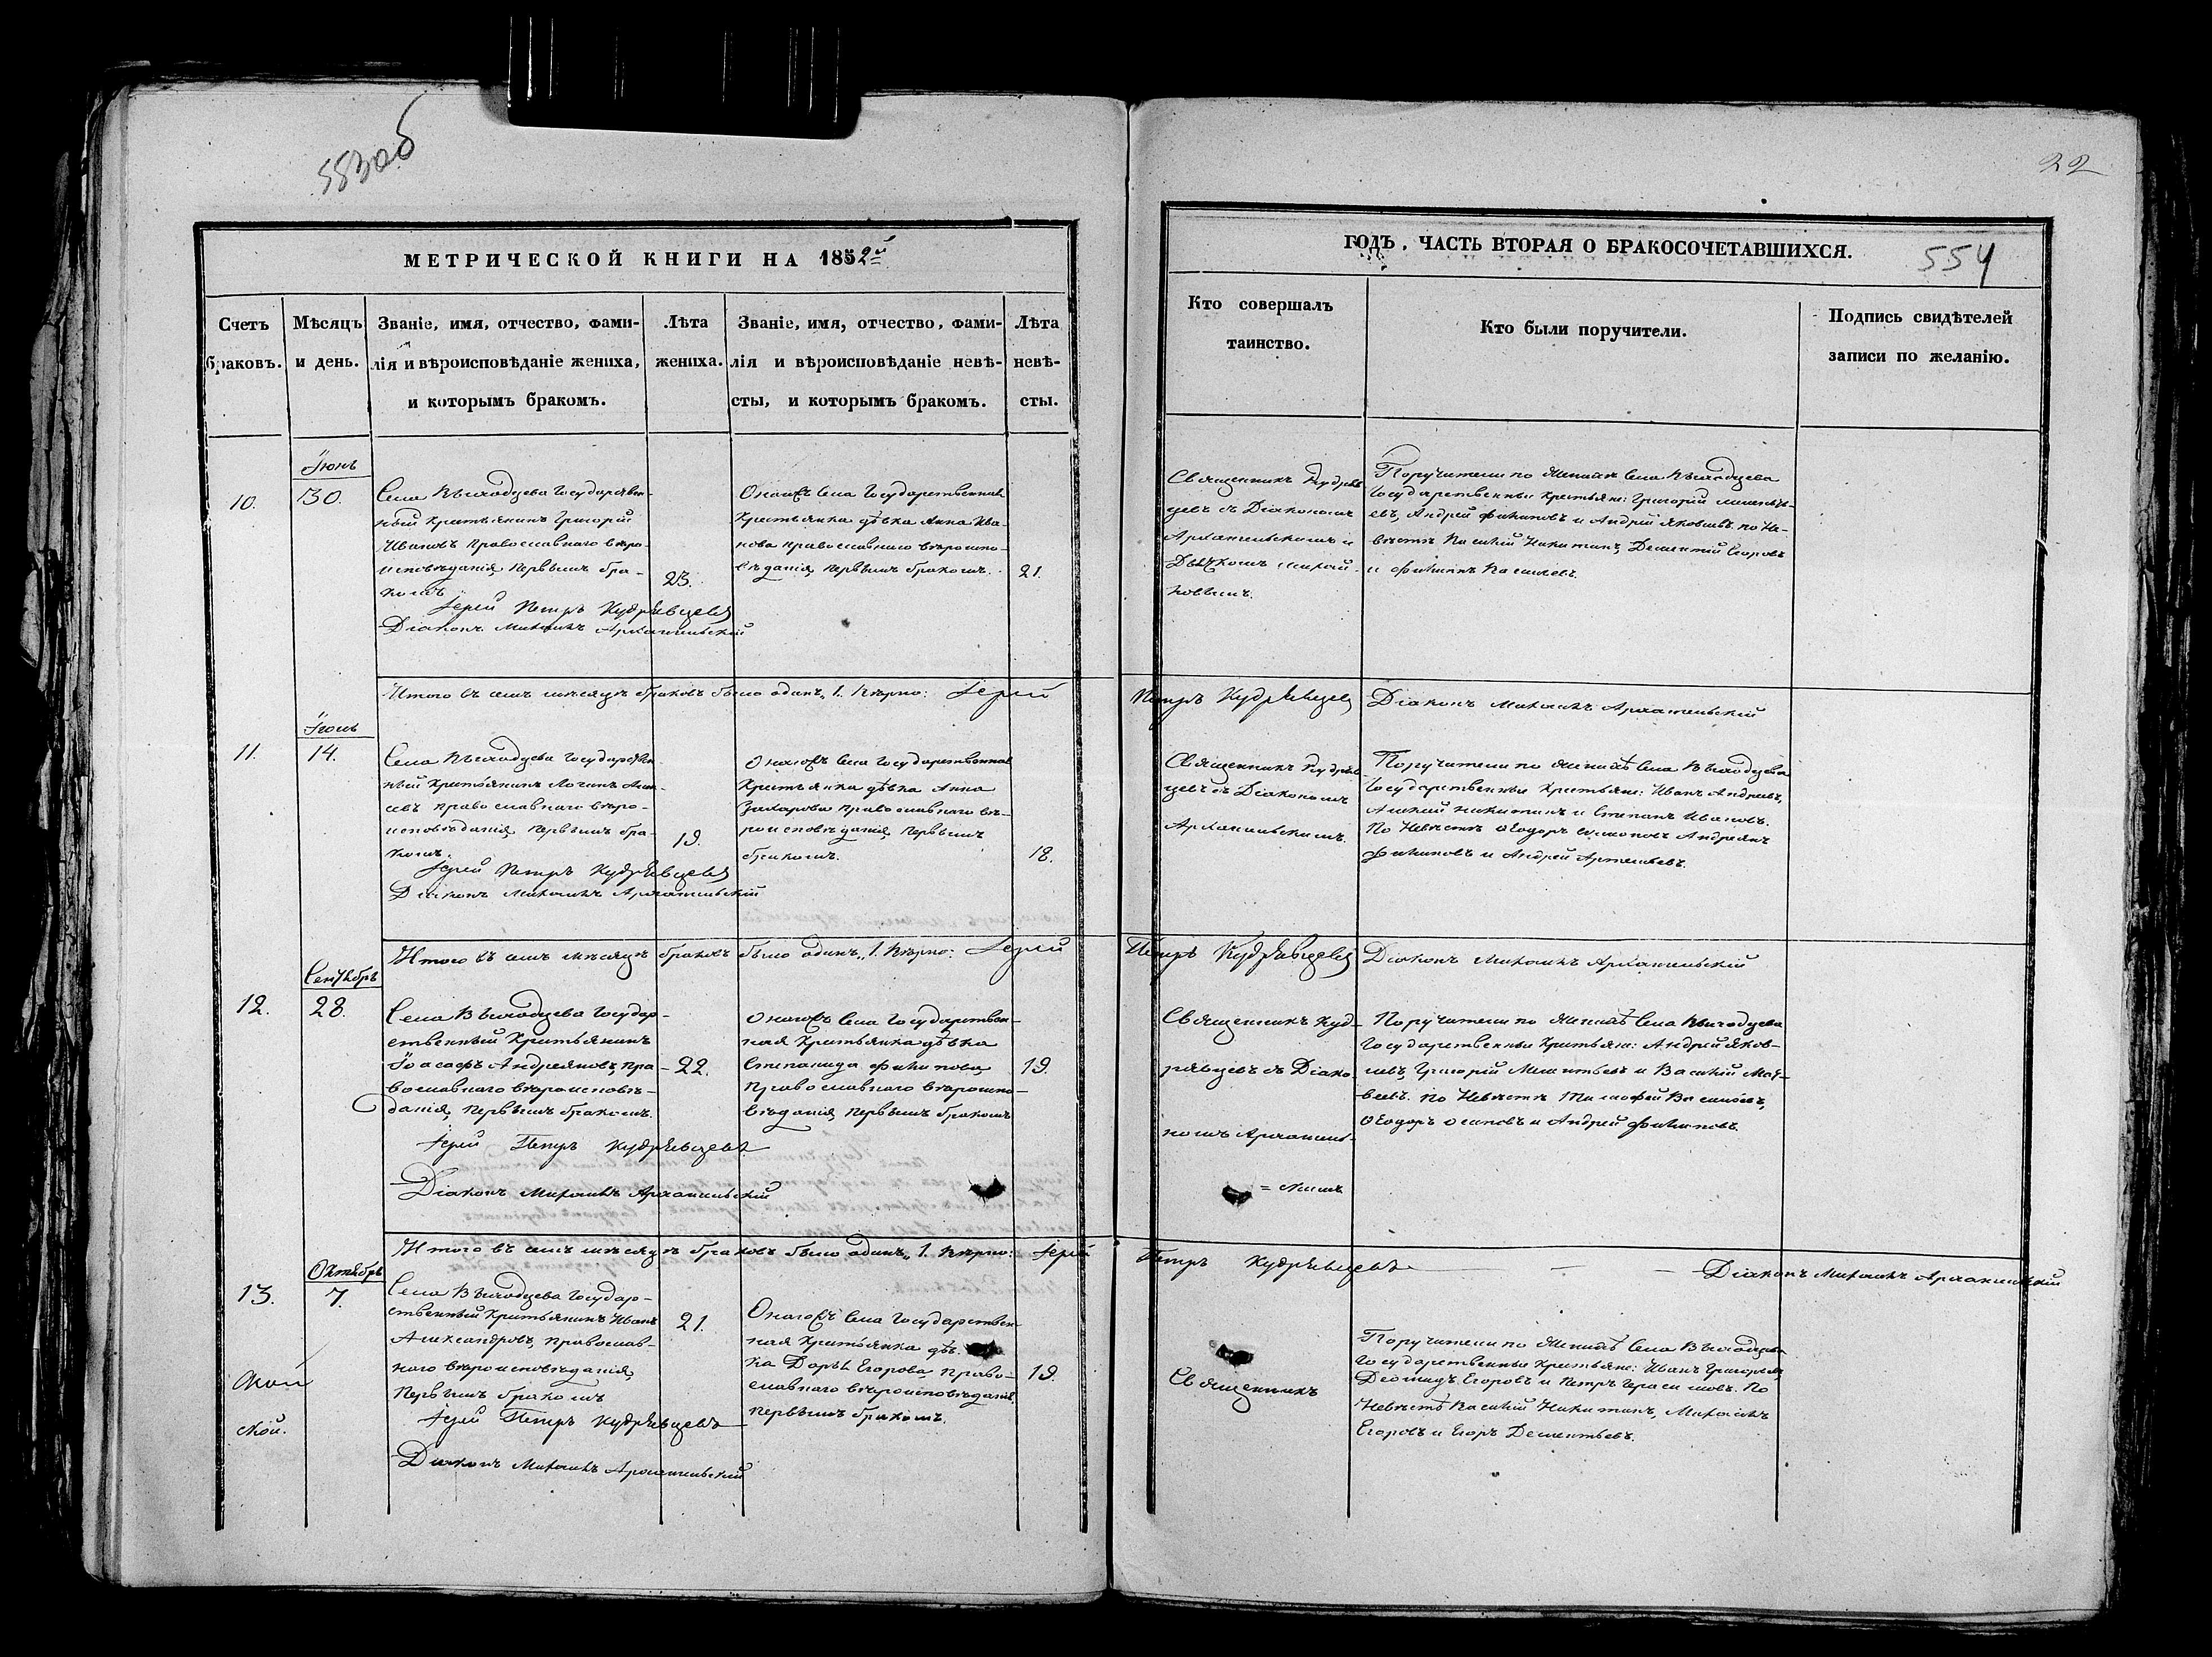 553об
22
МЕТРИЧЕСКОЙ КНИГИ НА 1852й
ГОДЪ. ЧАСТЬ ВТОРАЯ О БРАКОСОЧЕТАВШИХСЯ.
554
Счетъ
браковъ.
Мѣсяцъ
и день.
Званіе, имя, отчество, фами-
лія и вѣроисповѣданіе жениха,
и которымъ бракомъ.
Лѣта
жениха.
Званіе, имя, отчество, фами-
лія и вѣроисповѣданіе невѣ-
сты, и которымъ бракомъ.
Лѣта
невѣ-
сты.
Кто совершалъ
таинство.
Кто были поручители.
Подпись свидѣтелей
записи по желанію.
Іюнь
10.
30.
Села Выходцева Государствен-
ный Крестьянинъ Григорій
Ивановъ православнаго вѣро-
исповѣданія, первымъ бра-
комъ
23.
Іерей Петръ Кудрявцевъ
Діаконъ Михаилъ Архангельскій
Онагожъ Села Государственная
Крестьянка дѣвка Анна Ива-
нова православнаго вѣроиспо-
вѣданія, первымъ бракомъ.
21.
Священникъ Кудряв
цевъ съ Діакономъ
Архангельскимъ и
Поручители по Женихѣ Села Выходцева
Государственные Крестьяне: Григорій
евъ, Андрей Филиповъ и Андрей Яковлевъ. по Не-
вѣстѣ Василій Никитинъ, Дементій Егоровъ
и Филипъ Васильевъ.
Итого въ семъ мѣсяцѣ браковъ было одинъ „1. Вѣрно: Іерей Петръ Кудрявцевъ Діаконъ Михаилъ Архангельскій
Іюль
11.
14.
Села Выходцева Государствен
ный Крестьянинъ Логинъ
евъ православнаго вѣро-
исповѣданія, первымъ бра-
комъ.
19.
Іерей Петръ Кудрявцевъ
Діаконъ Михаилъ Архангельскій
Онагожъ Села Государственная
Крестьянка дѣвка Анна
Захарова православнаго вѣ-
роисповѣданія, первымъ
бракомъ.
18.
Священникъ Кудряв-
цевъ съ Діакономъ
Архангельскимъ.
Поручители по Женихѣ Села Выходцева
Государственные Крестьяне: Иванъ Андреевъ,
Никитинъ и Степанъ Ивановъ.
По Невѣстѣ Ѳеодоръ Андреянъ
Филиповъ и Андрей Артемьевъ.
Итого въ семъ мѣсяцѣ браковъ было одинъ „1. Вѣрно: Іерей Петръ Кудрявцевъ Діаконъ Михаилъ Архангельскій
Сентябрь
12.
28.
Села Выходцева Государ-
ственный Крестьянинъ
Іоасафъ Андреяновъ, пра-
вославнаго вѣроисповѣ-
данія, первымъ бракомъ.
22.
Іерей Петръ Кудрявцевъ
Діаконъ Михаилъ Архангельскій
Онагожъ Села Государствен-
ная Крестьянка дѣвка
Степанида Филипова
православнаго вѣроиспо-
вѣданія, первымъ бракомъ
19.
Священникъ Куд-
рявцевъ съ Діако-
номъ Архангель-
=скимъ
Поручители по Женихѣ Села Выходцева
Государственные Крестьяне: Андрей Яков-
левъ, Григорій и Василій Мат-
веевъ. по Невѣстѣ Тимофей Васильевъ,
Ѳеодоръ Осиповъ и Андрей Филиповъ.
Итого въ семъ мѣсяцѣ браковъ было одинъ „1. Вѣрно: Іерей Петръ Кудрявцевъ Діаконъ Михаилъ Архангельскій
Октябрь
13.
7.
Села Выходцева Государ-
ственный Крестьянинъ Иванъ
Александровъ, православ-
наго вѣроисповѣданія,
первымъ бракомъ
21.
Іерей Петръ Кудрявцевъ
Діаконъ Михаилъ Архангельскій
Онагожъ Села Государствен-
ная Крестьянка дѣв-
ка Дарья Егорова право-
славнаго вѣроисповѣданія,
первымъ бракомъ.
19.
Священникъ
Поручители по Женихѣ Села Выходцева
Государственные Крестьяне: Иванъ Григорьевъ
Деомидъ Егоровъ и Петръ Герасимовъ. По
Невѣстѣ Василій Никитинъ, Михаилъ
Егоровъ и Егоръ Дементьевъ.
ской.